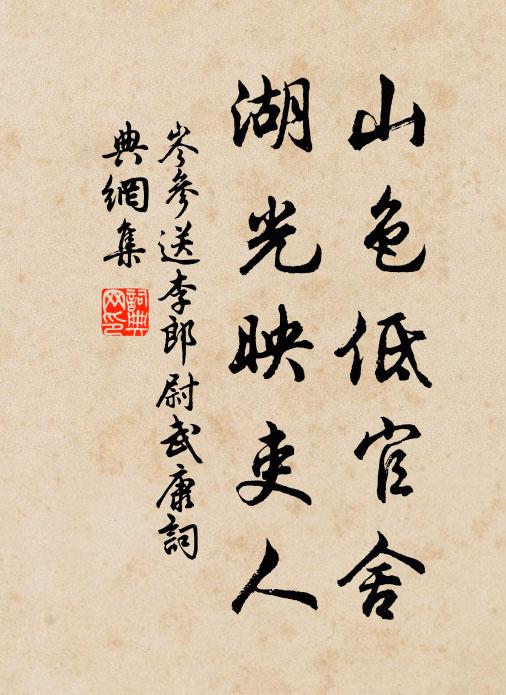 山色低官舍
湖光映吏人
岑參送李郎尉武康詞
典網集
詞典網印